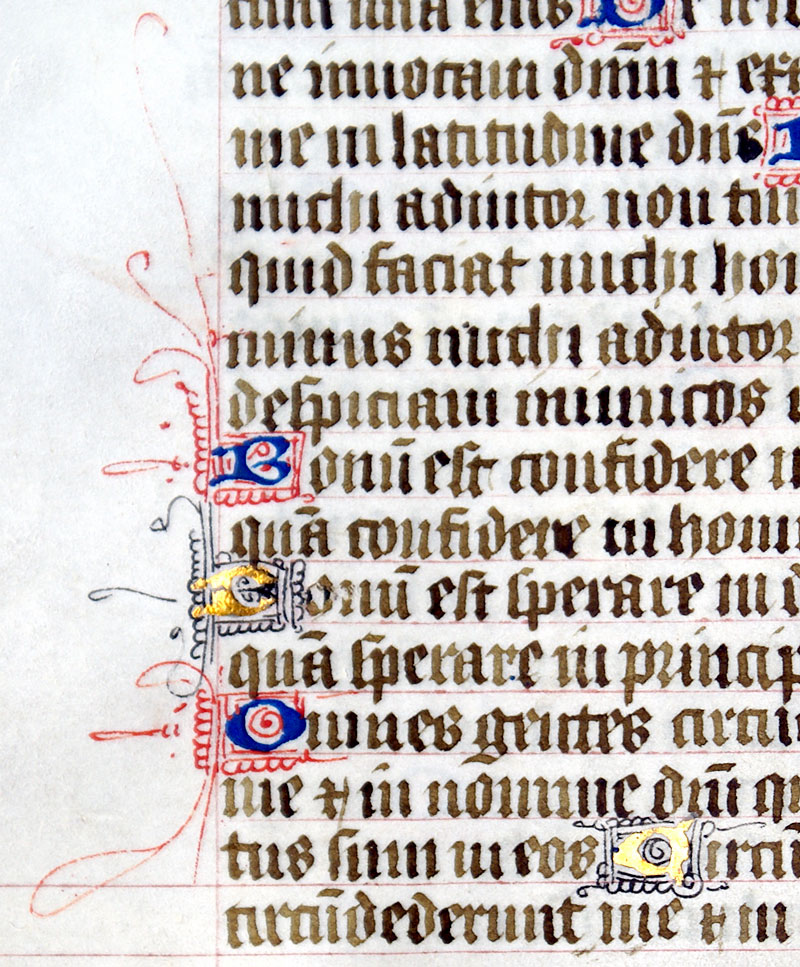 eius De
ne inuocaui dñm ⁊ exa
me in latitudine dñs D
michi adiutor non tim
quid faciat michi hom
minus michi adiutor
despiciam inimicos
Bonū est confidere in
quā confidere in homi
Bonū est sperare in d
quā sperare in princip
Omnes gentes circui
me ⁊ in nomine dñi qu
tus sum in eos Circū
circūdederunt me ⁊ in